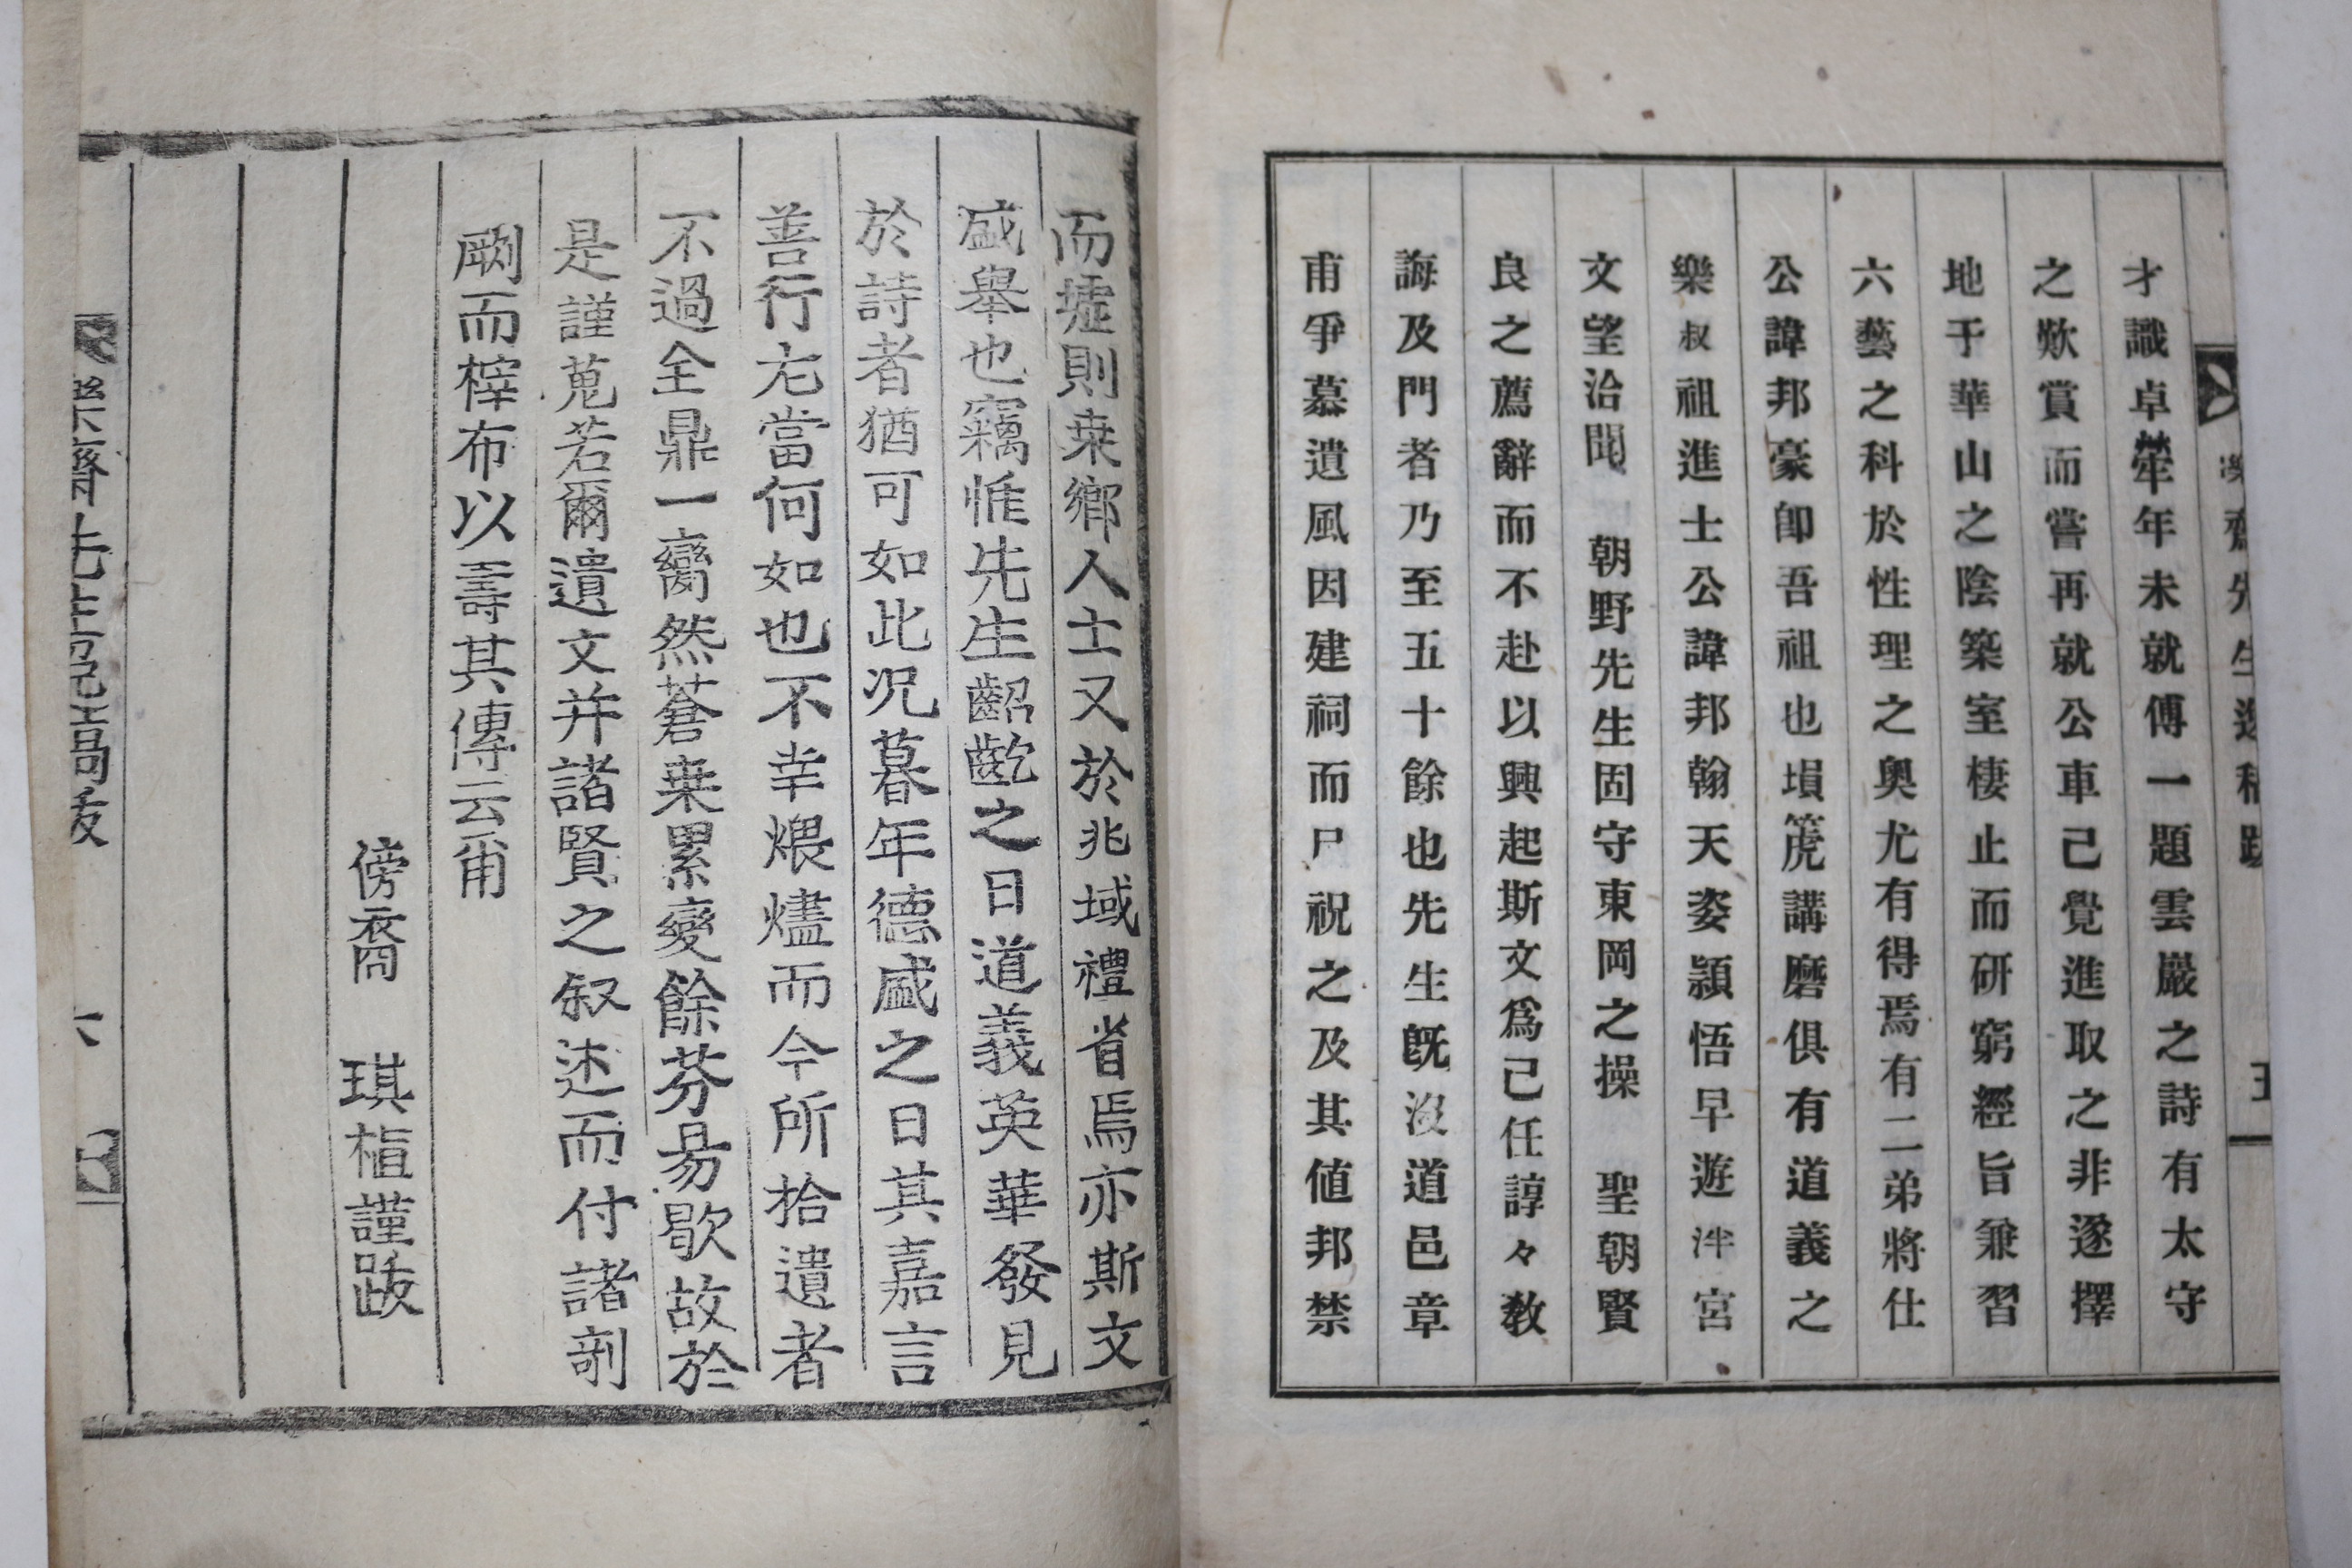 樂齋先生逸稿跋
五
才識卓犖年未就傅一題雲嚴之詩有太守
之歎賞而嘗再就公車己覺進取之非遂擇
地于華山之陰築室棲止而研窮經旨兼習
六藝之科於性理之奧尤有得焉有二弟將仕
公諱邦豪卽吾祖也塤箎講磨俱有道義之
樂叔祖進士公諱邦翰天姿潁悟早遊泮宮
文望洽聞 朝野先生固守東岡之操 聖朝賢
良之薦辭而不赴以興起斯文爲己任諄々敎
誨及門者乃至五十餘也先生旣沒道邑章
甫爭慕遺風因建祠而尸祝之及其値邦禁
而墟則桒鄉人士又於兆域禮省焉亦斯文
盛舉也竊惟先生齠齕之日道義英華發見
於詩者猶可如此况暮年德盛之日其嘉言
善行尤當何如也不幸煨燼而今所拾遺者
不過全鼎一臠然蒼桒累變餘芬昜歇故於
是謹蒐若爾遺文并諸賢之叙述而付諸剞
劂而榟布以壽其傳云爾
傍裔 琪植謹跋
樂齋先生逸稿跋
六